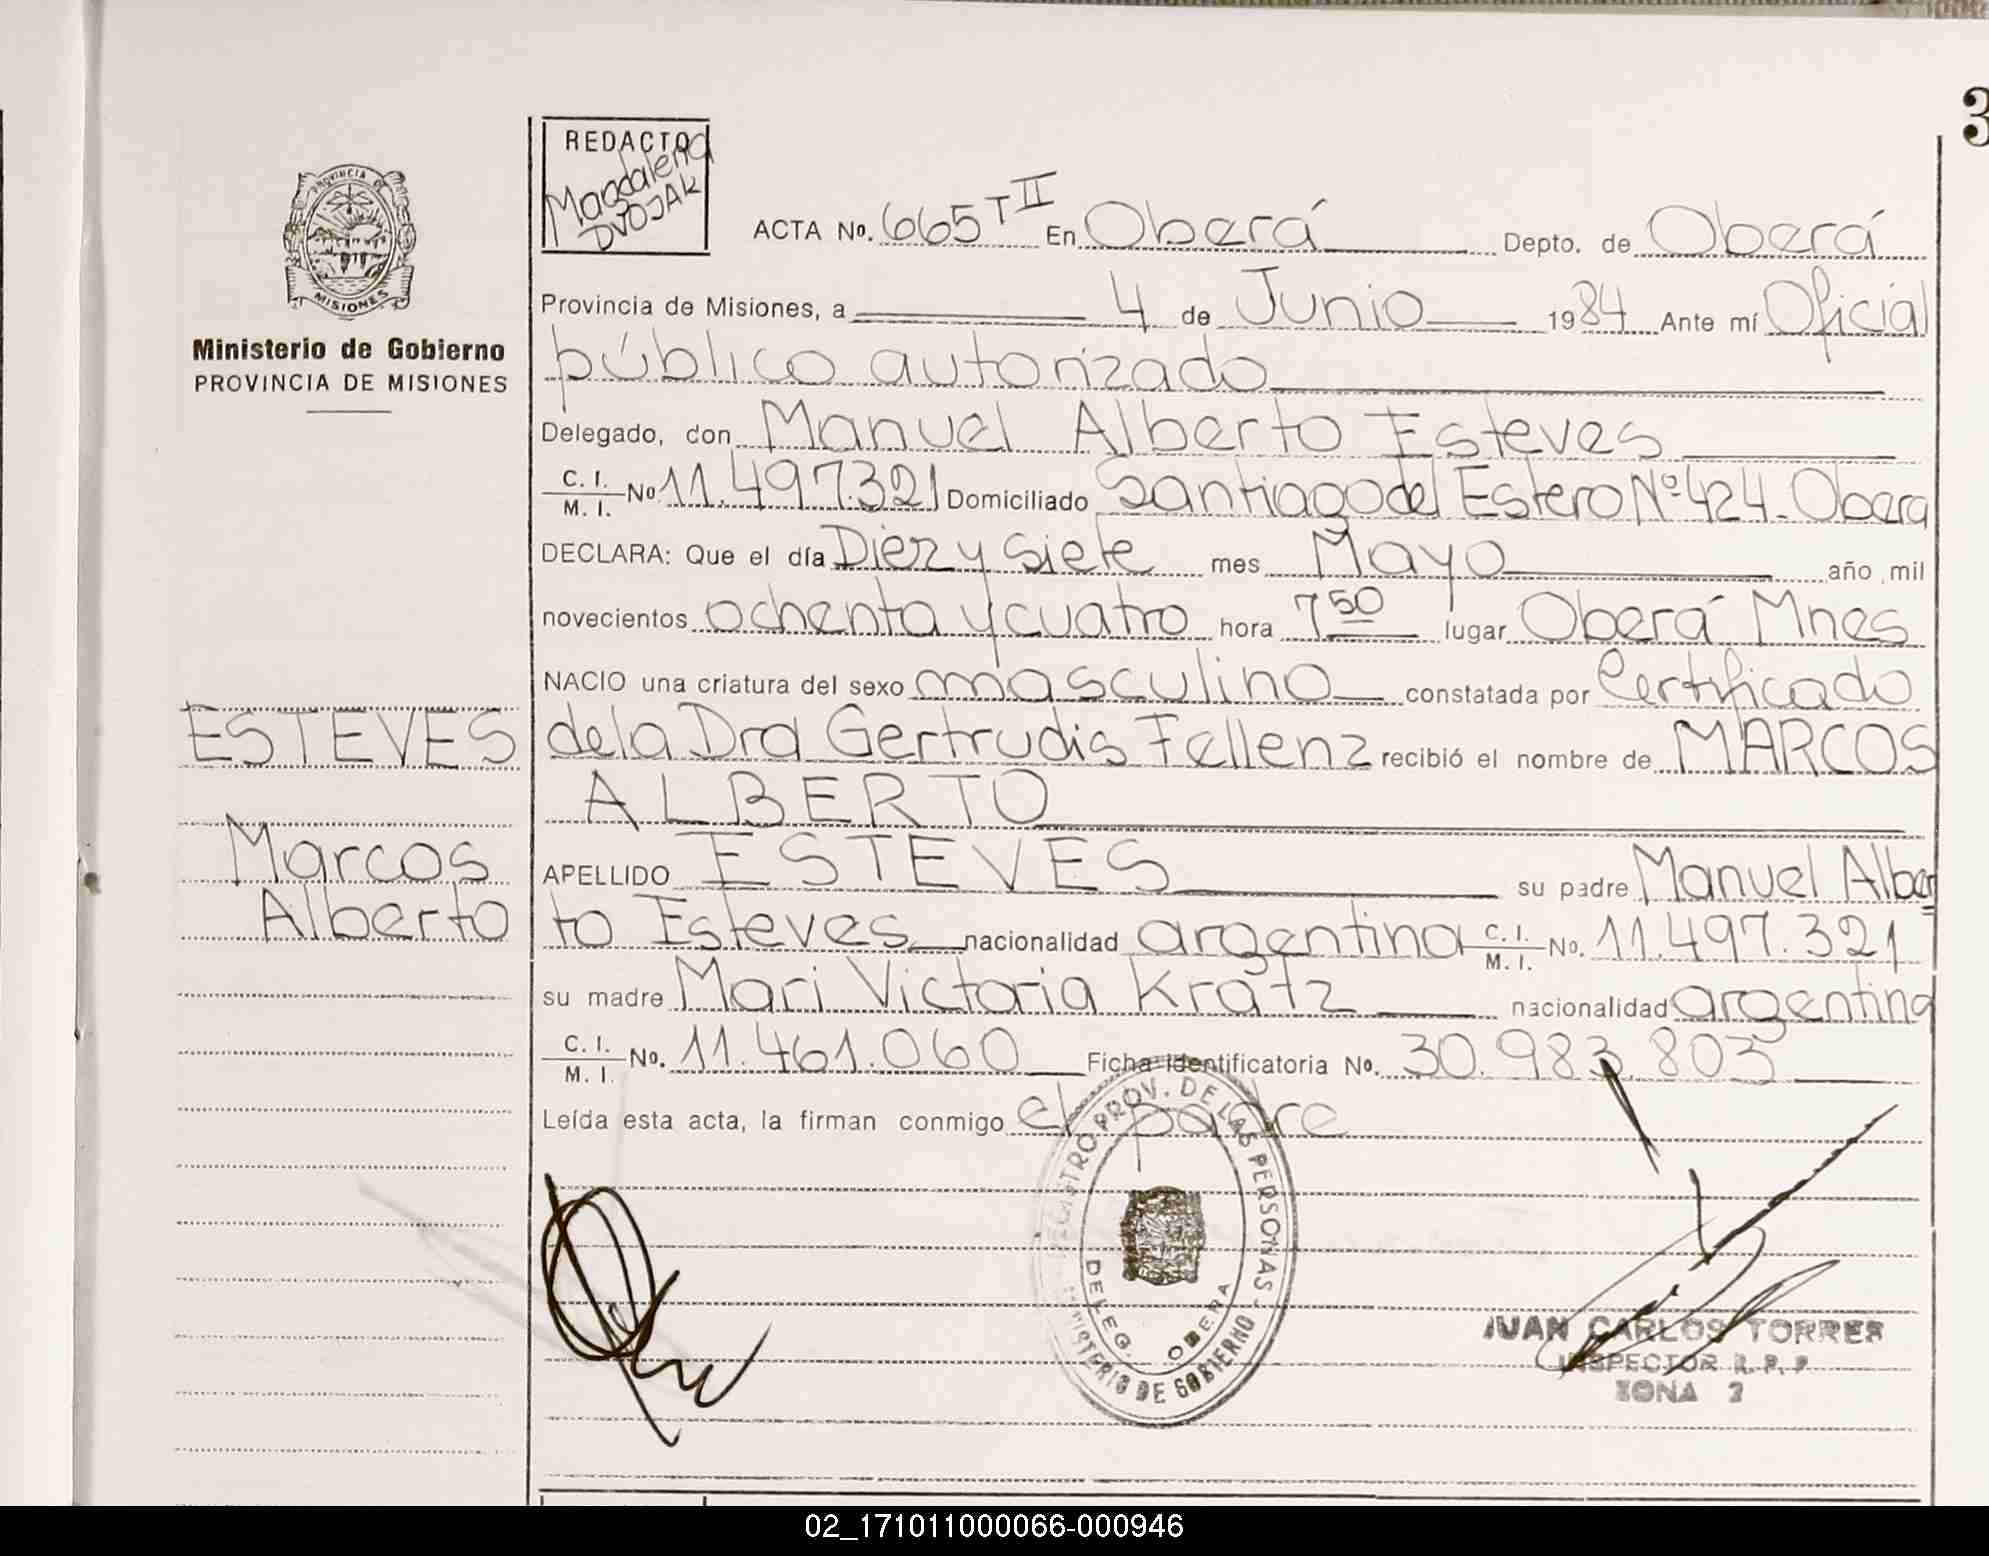 3
REDACTO
Magdalena
DVOJAK
PROVINCIA DE
MISIONES
Ministerio de Gobierno
PROVINCIA DE MISIONES
ACTA No. 665 T II En Oberá Depto. de Oberá
Provincia de Misiones, a 4 de Junio 1984 Ante mí Oficial
público autorizado
Delegado, don Manuel Alberto Esteves
C. I. / M. I. No 11.497.321 Domiciliado Santiago del Estero Nº 424. Obera
DECLARA: Que el día Diez y Siete mes Mayo año mil
novecientos ochenta y cuatro hora 7 50 lugar Oberá Mnes
NACIO una criatura del sexo masculino constatada por Certificado
ESTEVES
dela Dra Gertrudis Fellenz recibió el nombre de MARCOS
ALBERTO
Marcos
Alberto
APELLIDO ESTEVES su padre Manuel Alber
to Esteves nacionalidad argentina C. I. / M. I. No. 11.497.321
su madre Mari Victoria Kratz nacionalidad argentina
C. I. / M. I. No. 11.461.060 Ficha Identificatoria No. 30.983.803
Leída esta acta, la firman conmigo el padre
REGISTRO PROV. DE LAS PERSONAS -
MINISTERIO DE GOBIERNO
DELEG. OBERA
JUAN CARLOS TORRES
INSPECTOR R. P. P.
ZONA 2
02_171011000066-000946